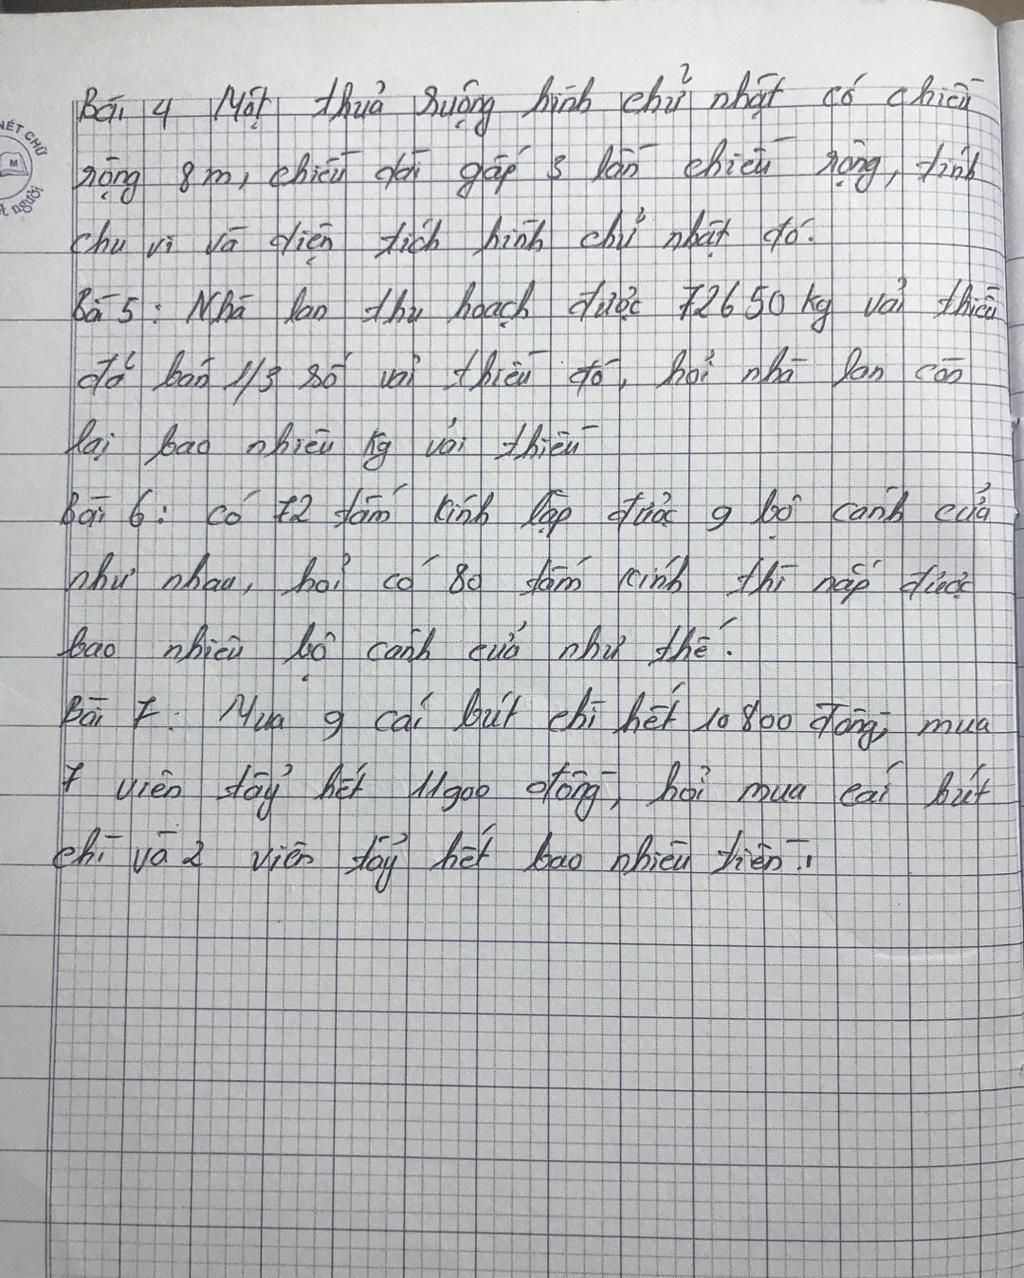 NÉT CHỮ
M
người
Bài 4 Một thuả ruộng hình chữ nhật có chiều
rộng 8m, chiều dài gấp 3 lần chiều rộng, tính
chu vi và diện tích hình chữ nhật đó.
Bà 5: Nhà lan thu hoạch được 72650 kg vải thiều
đã bán 1/3 số vải thiều đó, hỏi nhà lan còn
lại bao nhiêu kg vải thiều
Bài 6: có 72 tấm kính lắp được 9 bộ cánh cửa
như nhau, hỏi có 80 tấm kính thì nắp được
bao nhiêu bộ cánh cửa như thế.
Bài 7: Mua 9 cái bút chì hết 10800 đồng, mua
7 viên tẩy hết 11900 đồng, hỏi mua cái bút
chì và 2 viên tẩy hết bao nhiêu tiền.